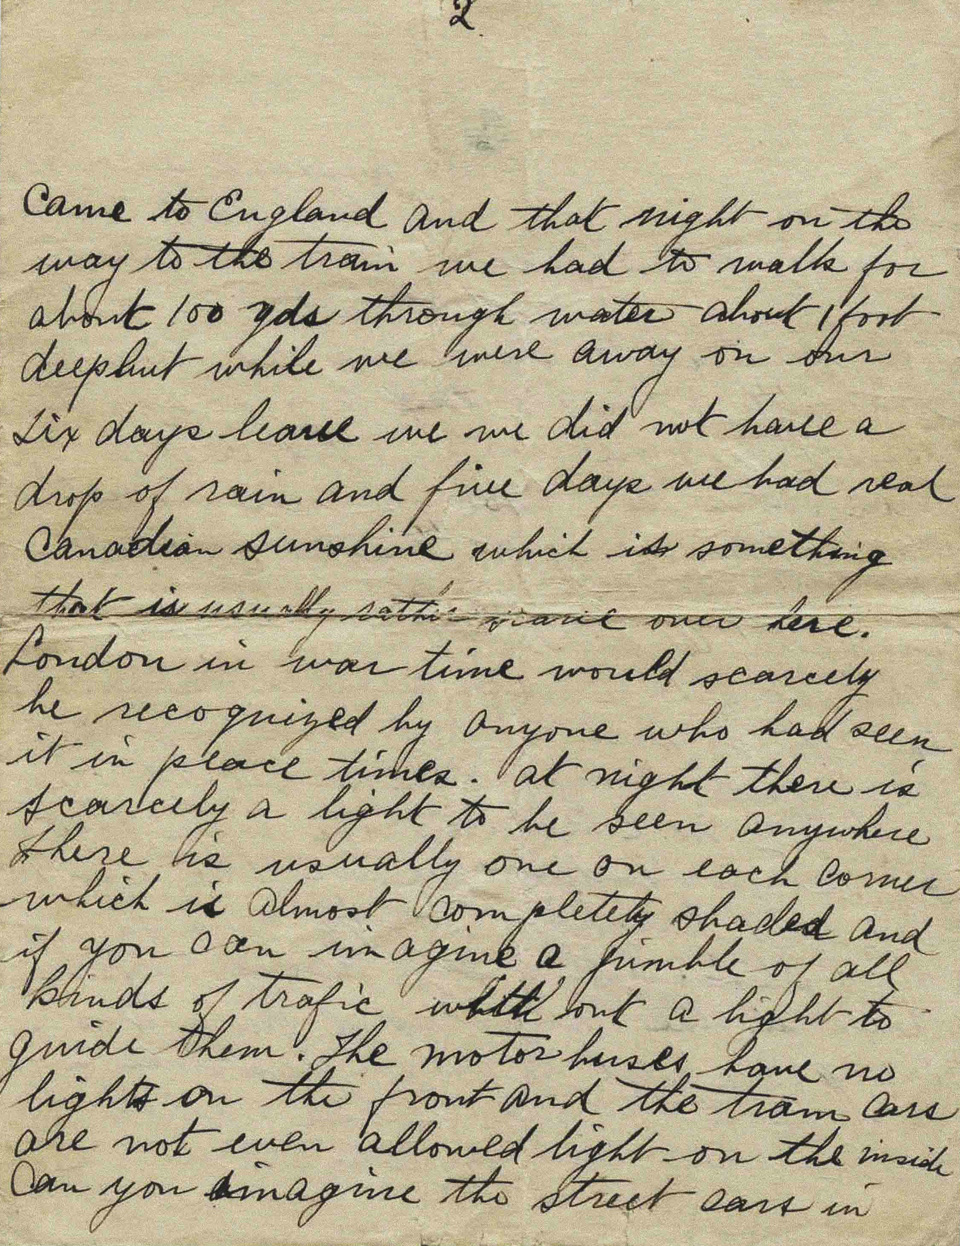 2
Came to England and that night on the
way to the train we had to walk for
about 100 yds through water about 1 foot
deep but while we were away on our
six days leave we we did not have a
drop of rain and five days we had real
Canadian sunshine which is something
that is usually rather over here.
London in war time would scarcely
be recognized by anyone who had seen
it in peace times. at night there is
scarcely a light to be seen anywhere
There is usually one on each corner
which is almost completety shaded and
if you can imagine a jumble of all
kinds of trafic with out a light to
guide them. The motor buses have no
lights on the front and the tram cars
are not even allowed light on the inside
Can you imagine the street cars in